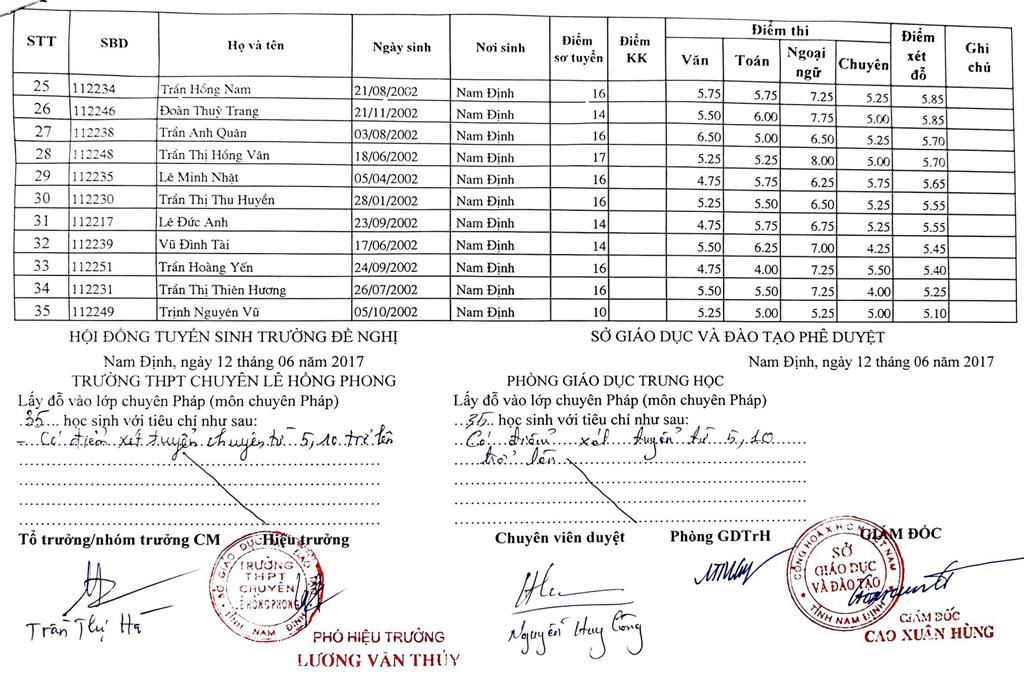 STT SBD Họ và tên Ngày sinh Nơi sinh Điểm sơ tuyển Điểm KK Điểm thi Điểm xét đỗ Ghi chú
Văn Toán Ngoại ngữ Chuyên
25 112234 Trần Hồng Nam 21/08/2002 Nam Định 16 5.75 5.75 7.25 5.25 5.85
26 112246 Đoàn Thuỳ Trang 21/11/2002 Nam Định 14 5.50 6.00 7.75 5.00 5.85
27 112238 Trần Anh Quân 03/08/2002 Nam Định 16 6.50 5.00 6.50 5.25 5.70
28 112248 Trần Thị Hồng Vân 18/06/2002 Nam Định 17 5.25 5.25 8.00 5.00 5.70
29 112235 Lê Minh Nhật 05/04/2002 Nam Định 16 4.75 5.75 6.25 5.75 5.65
30 112230 Trần Thị Thu Huyền 28/01/2002 Nam Định 16 5.25 5.50 6.50 5.25 5.55
31 112217 Lê Đức Anh 23/09/2002 Nam Định 14 4.75 5.75 6.75 5.25 5.55
32 112239 Vũ Đình Tài 17/06/2002 Nam Định 14 5.50 6.25 7.00 4.25 5.45
33 112251 Trần Hoàng Yến 24/09/2002 Nam Định 16 4.75 4.00 7.25 5.50 5.40
34 112231 Trần Thị Thiên Hương 26/07/2002 Nam Định 16 5.50 5.50 7.25 4.00 5.25
35 112249 Trịnh Nguyên Vũ 05/10/2002 Nam Định 10 5.25 5.00 5.25 5.00 5.10
HỘI ĐỒNG TUYỂN SINH TRƯỜNG ĐỀ NGHỊ
Nam Định, ngày 12 tháng 06 năm 2017
TRƯỜNG THPT CHUYÊN LÊ HỒNG PHONG
Lấy đỗ vào lớp chuyên Pháp (môn chuyên Pháp)
35 học sinh với tiêu chí như sau:
- Có điểm xét tuyển chuyên từ 5,10 trở lên
Tổ trưởng/nhóm trưởng CM Hiệu trưởng
SỞ GIÁO DỤC VÀ ĐÀO TẠO
TRƯỜNG
THPT
CHUYÊN
LÊ HỒNG PHONG
TỈNH NAM ĐỊNH
Trần Thị Hà
PHÓ HIỆU TRƯỞNG
LƯƠNG VĂN THỦY
SỞ GIÁO DỤC VÀ ĐÀO TẠO PHÊ DUYỆT
Nam Định, ngày 12 tháng 06 năm 2017
PHÒNG GIÁO DỤC TRUNG HỌC
Lấy đỗ vào lớp chuyên Pháp (môn chuyên Pháp)
35 học sinh với tiêu chí như sau:
Có điểm xét tuyển từ 5,10
trở lên
Chuyên viên duyệt Phòng GDTrH GIÁM ĐỐC
Nguyễn Huy Công
CỘNG HOÀ X.H.C.N VIỆT NAM
SỞ
GIÁO DỤC
VÀ ĐÀO TẠO
TỈNH NAM ĐỊNH
GIÁM ĐỐC
CAO XUÂN HÙNG